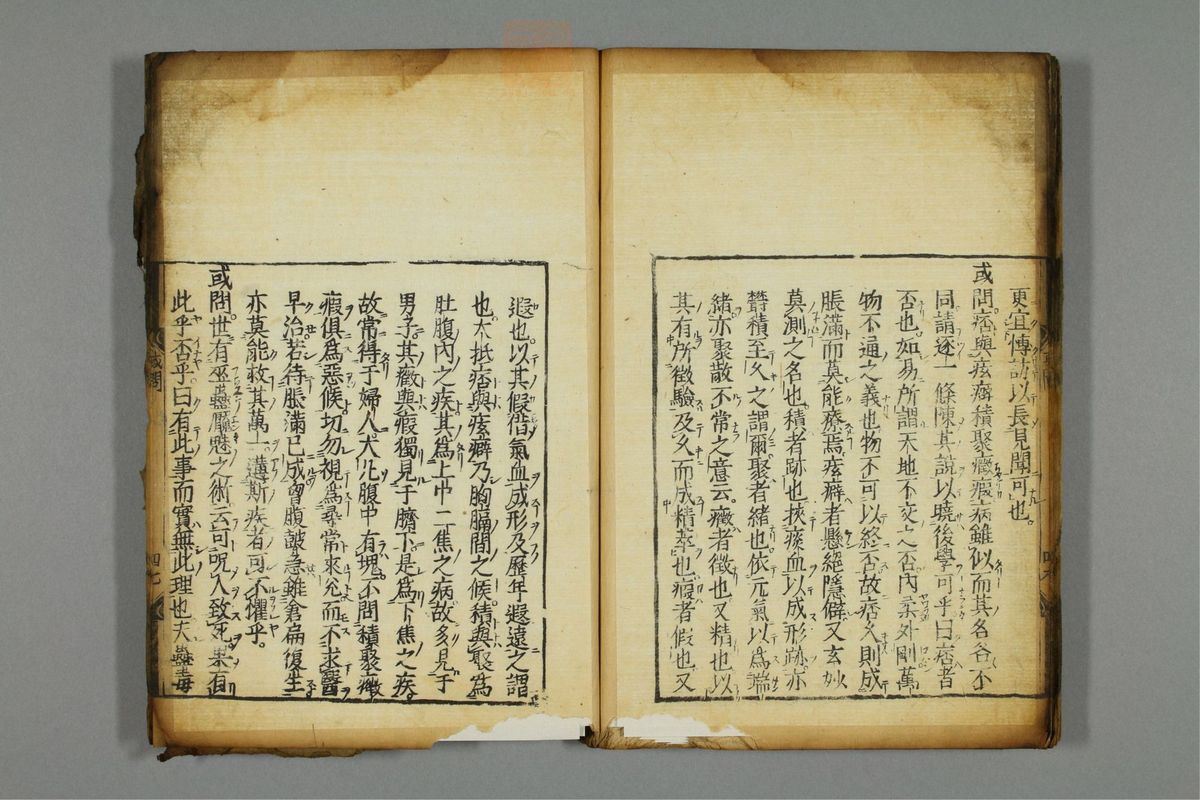 更宜博訪以長見聞可也
或問痞與痃癖積聚癥瘕病雖似而其各各不
同請逐一條陳其說以曉後學可乎曰痞者
否也如易所謂天地不交之否內柔外剛萬
物不通之義也物不可以終否故痞久則成
脹滿而莫能療焉痃癖者懸絕隱僻又玄妙
莫測之名也積者跡也挾痰血以成形跡亦
鬱積至久之謂爾聚者緒也依元氣以為端
緒亦聚散不常之意云癥者徵也又精也以
其有所徵驗及久而成精萃也瘕者假也又
遐也以其假借氣血成形及歷年遐遠之謂
也大抵痞與痃癖乃胸膈間之候積與聚為
肚腹內之疾其為上中二焦之病故多見于
男子其癥與瘕獨見于臍下是為下焦之疾
故常得于婦人大凡腹中有塊不問積聚癥
瘕俱為惡候切勿視為尋常來兊而不求醫
早治若待脹滿已成胷腹皷急雖倉扁復生
亦莫能救其萬一遘斯疾者可不懼乎
或問世有巫蠱魘魅之術云可呪人致死果有
此乎否乎曰有此事而實無此理也夫蠱毒
或問
四七